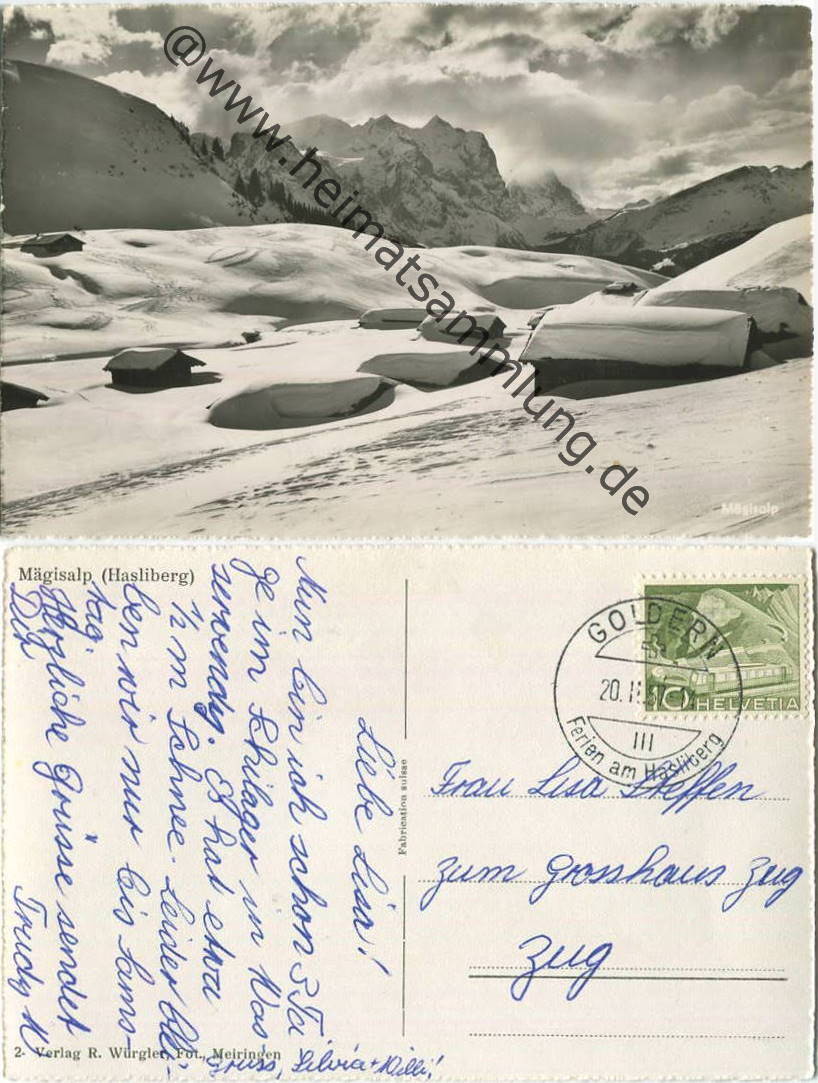 @www.heimatsammlung.de
Mägisalp
Mägisalp (Hasliberg)
Liebe Lisa!
Nun bin ich schon 3 Ta
ge im Schilager in Was
serwendig. Es hat etwa
½ m Schnee. Leider blei-
ben wir nur bis Sams-
tag.
Herzliche Grüsse sendet
Dir Trudy W
Gruss, Silvia + Willi!
2- Verlag R. Würgler, Fot., Meiringen
Fabrication suisse
GOLDERN
20.II
III
Ferien am Hasliberg
10 HELVETIA
Frau Lisa Steffen
zum Grosshaus Zug
Zug